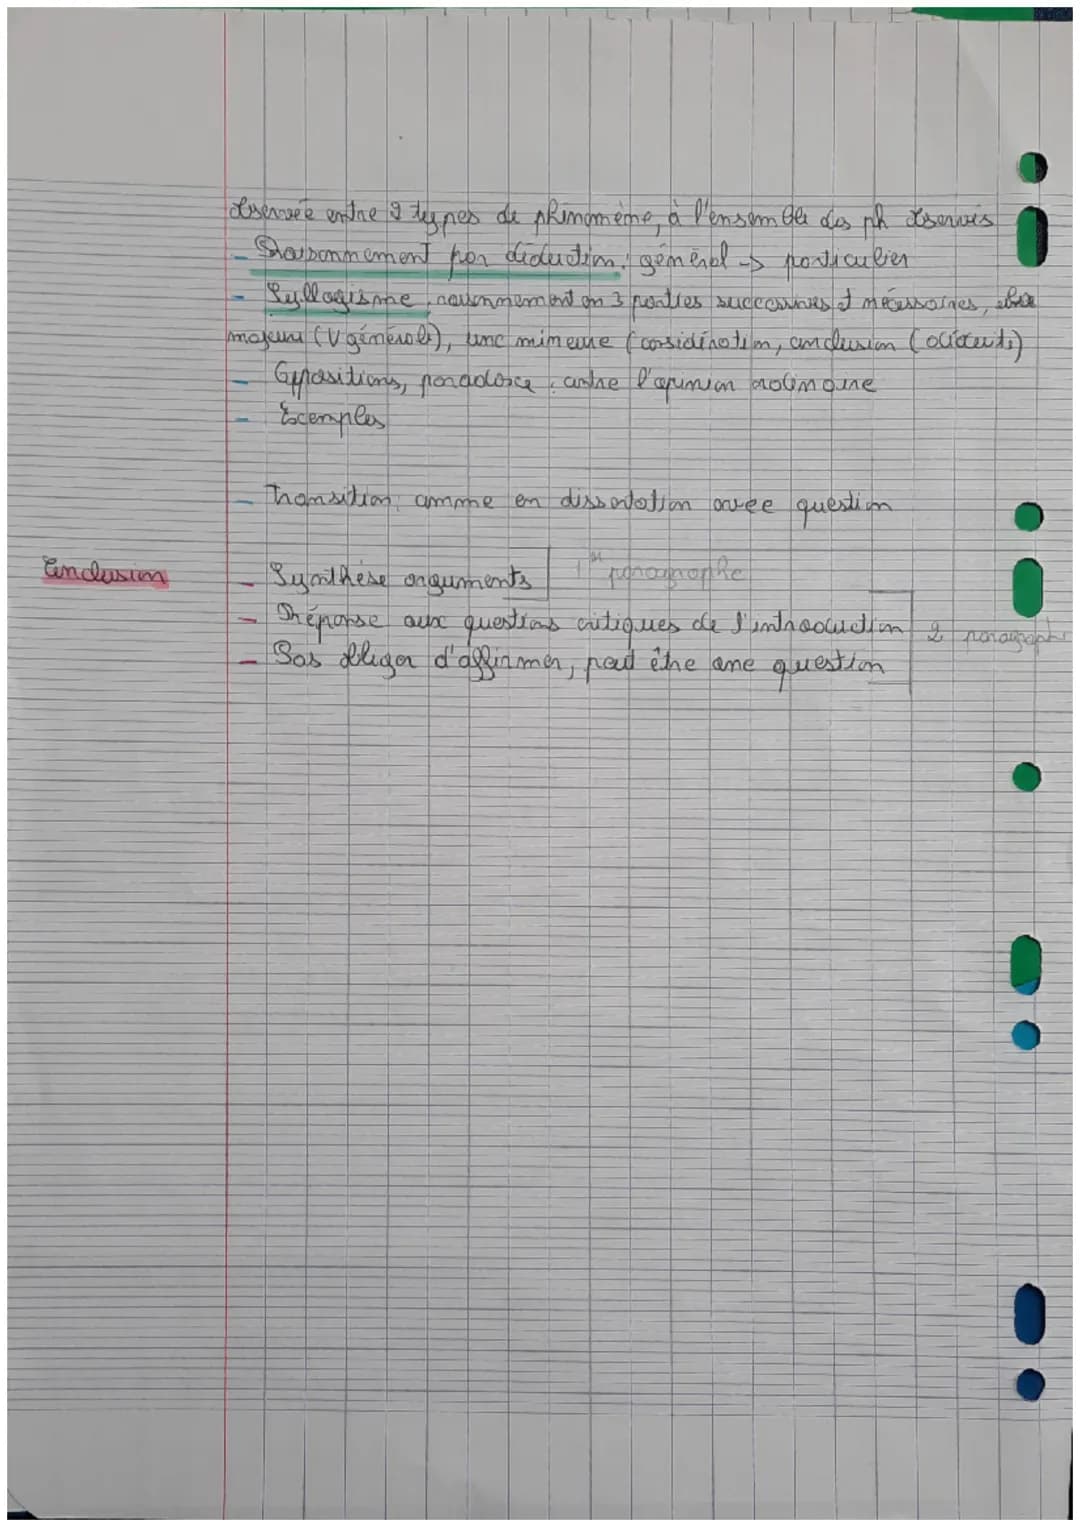 observée entre 2 types de phénomène, à l'ensemble des ph observés
- Raisonnement par déduction: général -> particulier
- Syllogisme, raisonnement en 3 parties successives et nécessaires,
majeure (V générale), une mineure (considération, conclusion (déduit)
- Oppositions, paradoxe: contre l'opinion ordinaire
- Exemples
- Transition: comme en dissertation avec question
Conclusion
- Synthèse arguments 1er paragraphe
- Réponse aux questions critiques de l'introduction 2 paragraphe
- Pas obliger d'affirmer, peut être une question